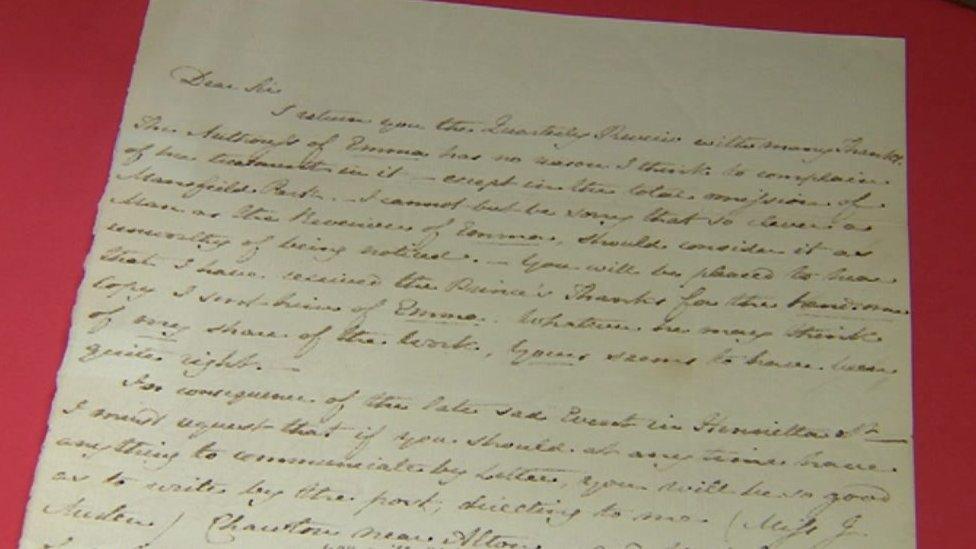 Dear Sir
I return you the Quarterly Review with many Thanks.
The Authoress of Emma has no reason I think to complain
of her treatment in it — except in the total omission of
Mansfield Park. — I cannot but be sorry that so clever a
Man as the Reviewer of Emma, should consider it as
unworthy of being noticed. — You will be pleased to hear
that I have received the Prince's Thanks for the handsome
Copy I sent him of Emma. Whatever he may think
of my share of the Work, Yours seems to have been
quite right. —
In consequence of the late sad Event in Henrietta St —
I must request that if you should at any time have
anything to communicate by Letter, you will be so good
as to write by the post, directing to me (Miss J.
Austen) Chawton near Alton